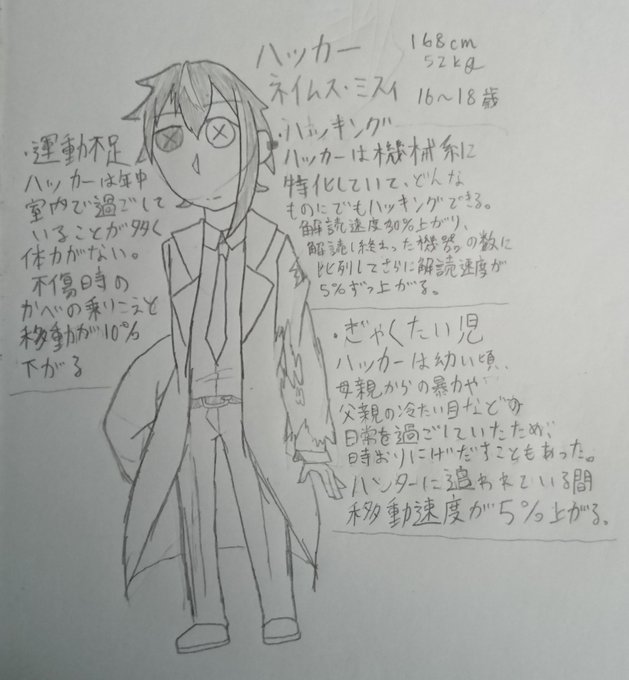 ハッカー
ネイムス・ミスィ
168cm
52kg
16～18歳
・ハッキング
ハッカーは機械系に
特化していて、どんな
ものにでもハッキングできる。
解読速度30%上がり、
解読し終わった機器の数に
比列してさらに解読速度が
5%ずつ上がる。
・運動不足
ハッカーは年中
室内で過ごして
いることが多く
体力がない。
不傷日時の
かべの乗りこえと
移動が10%
下がる
・ぎゃくたい児
ハッカーは幼い頃、
母親からの暴力や
父親の冷たい目などの
日常を過ごしていたため、
時おりにげだすこともあった。
ハンターに追われている間
移動速度が5%上がる。